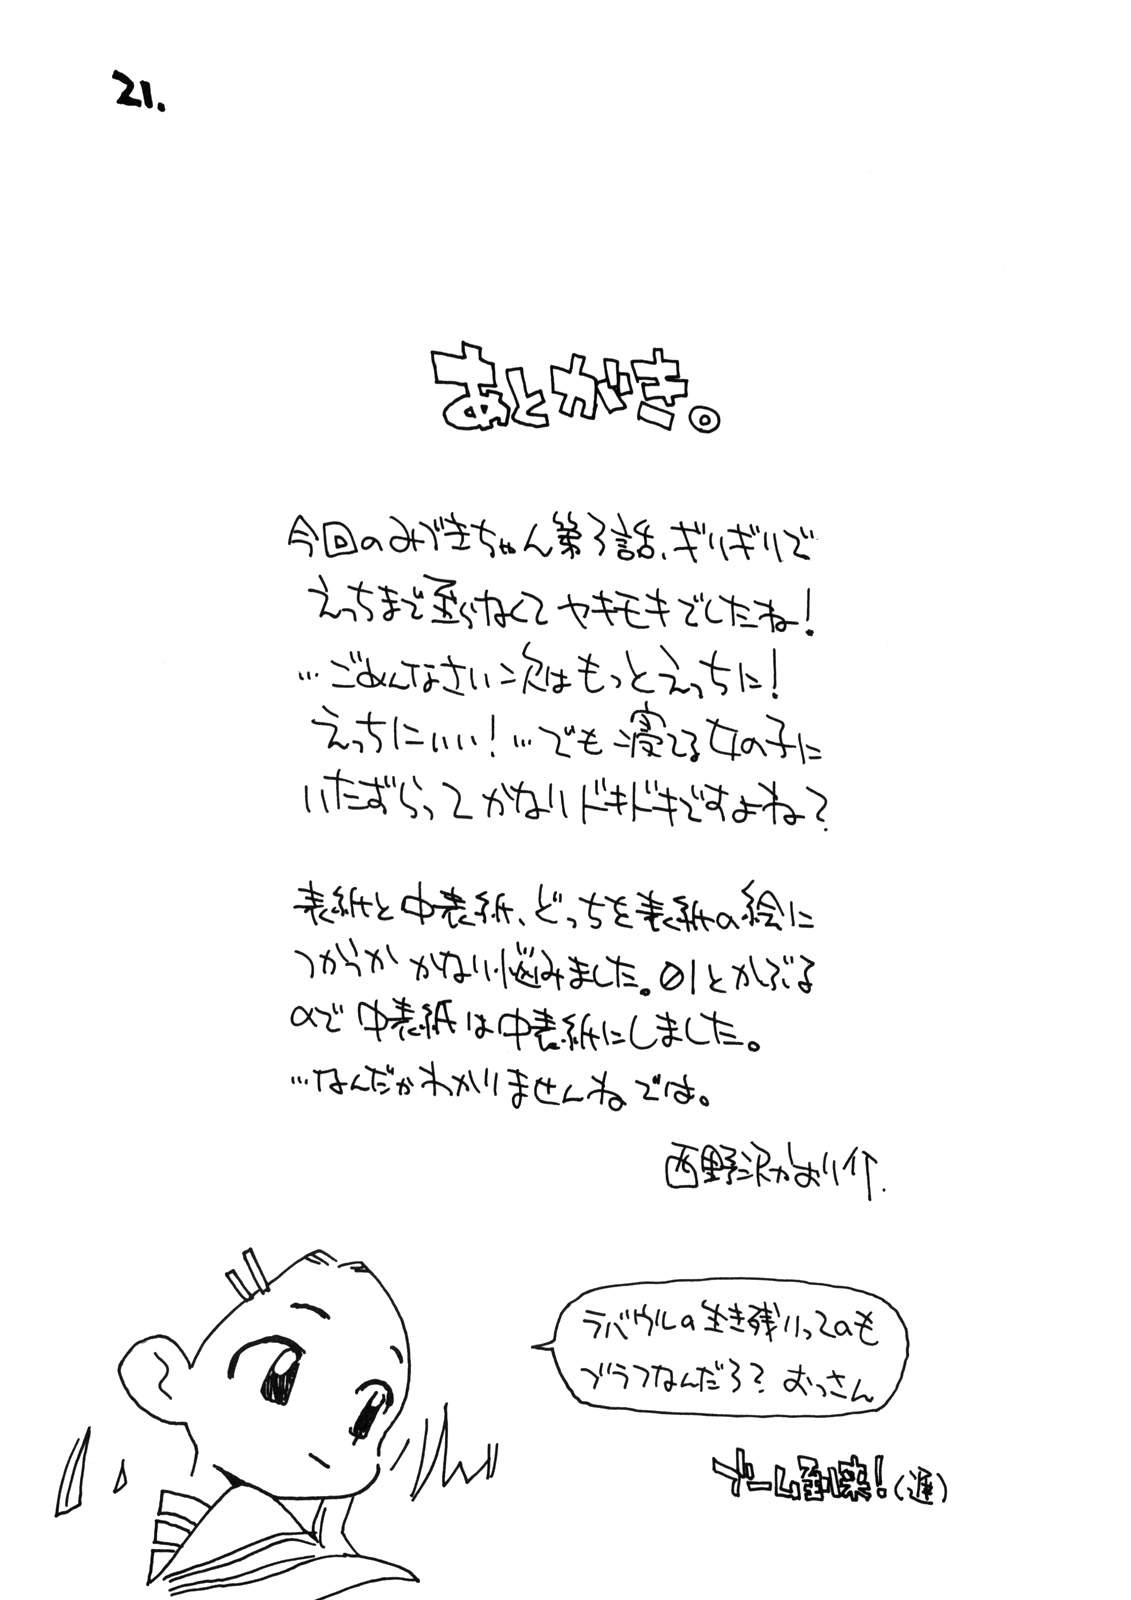 21.
あとがき。
今回のみずきちゃん第3話、ギリギリで
えっちまで至らなくてヤキモキでしたね!
…ごめんなさい次はもっとえっちに!
えっちにいい!…でも寝てる女の子に
いたずらってかなりドキドキですよね?
表紙と中表紙、どっちを表紙の絵に
つかうか かなり悩みました。01とかぶる
ので中表紙は中表紙にしました。
…なんだかわかりませんねでは。
西野
ラバウルの生き残りってのも
ブラフなんだろ? おっさん
ブーム到来!(遅)